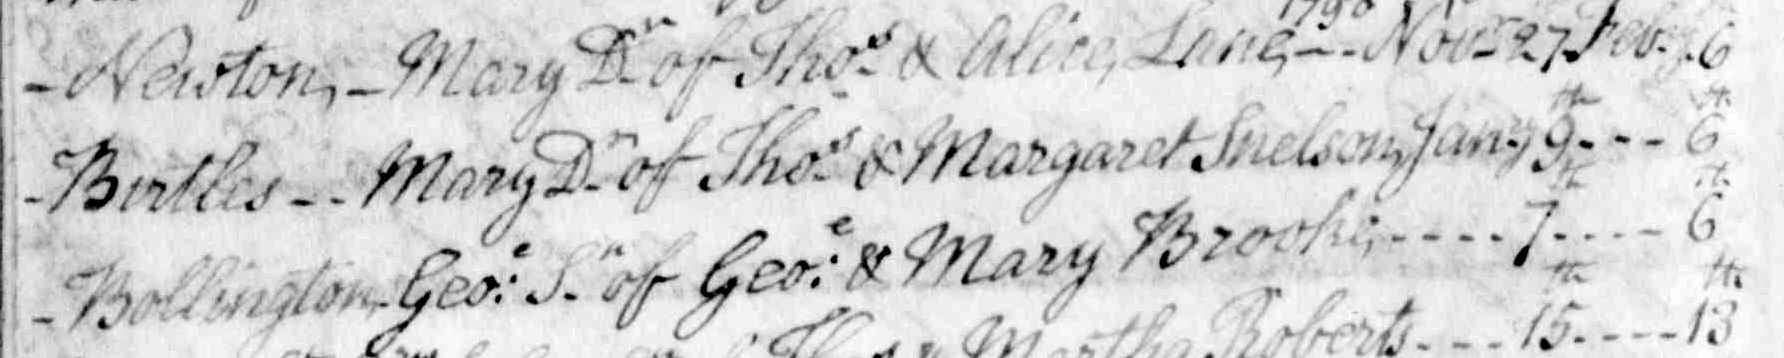 1790
- Newton, - Mary Dr. of Thos. & Alice Lane, - - Novr. 27 Feby. 6
- Birtles - - Mary Dr. of Thos. & Margaret Snelson, Jany 9th - - - 6th
- Bollington, Geoe. Sn. of Geoe. & Mary Brooke, - - - - 7th - - - - 6th
Thos & Martha Roberts - - - 15th - - - - 13th